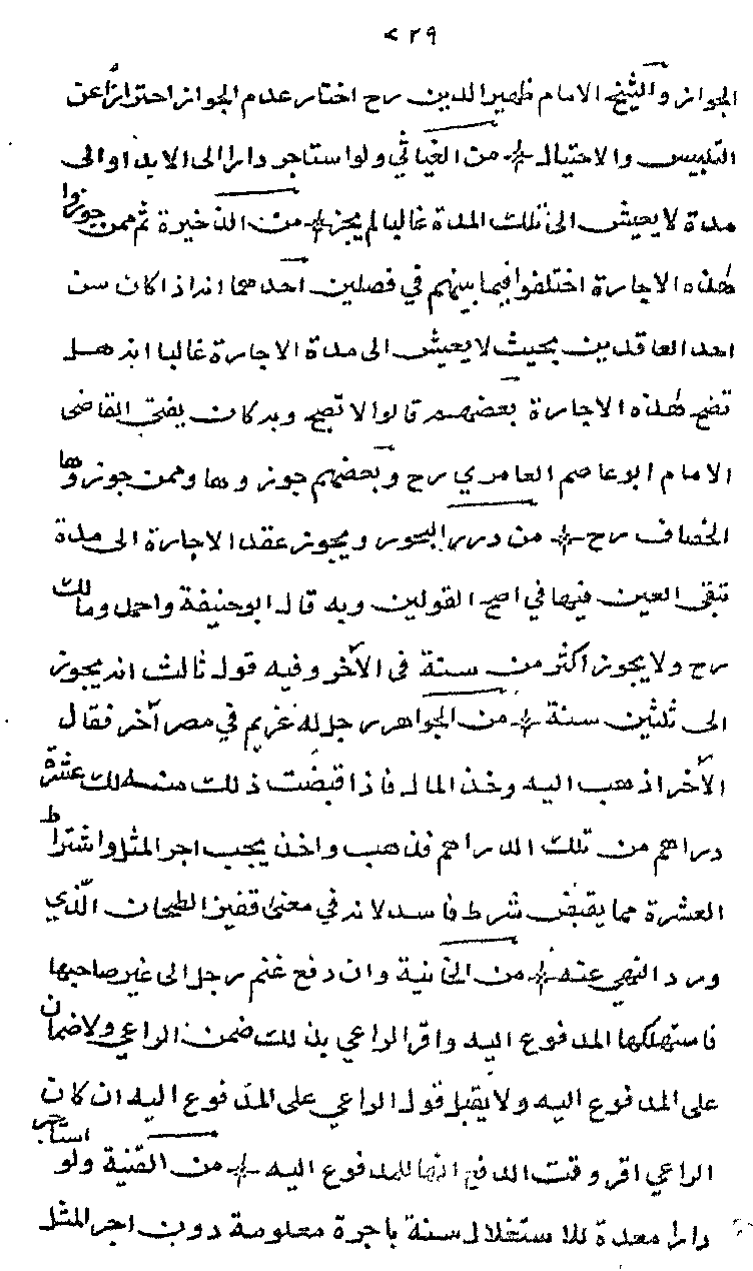 ٢٩
الجواز والشيخ الامام ظهير الدين رح اختار عدم الجواز احترازًا عن
التلبيس والاحتيال من الغياثي ولو استاجر دارا الى الابد او الى
مدة لا يعيش الى تلك المدة غالبا لم يجز من الذخيرة ثم ممن جوزوا
هذه الاجارة اختلفوا فيما بينهم في فصلين احدهما انه اذا كان سن
احد العاقدين بحيث لا يعيش الى مدة الاجارة غالبا انه هل
تصح هذه الاجارة بعضهم قالوا لا تصح وبه كان يفتى القاضى
الامام ابو عاصم العامري رح وبعضهم جوزوها وممن جوزوها
الخصاف رح من درر البحور ويجوز عقد الاجارة الى مدة
تبقى العين فيها في اصح القولين وبه قال ابو حنيفة واحمد ومالك
رح ولا يجوز اكثر من سنة فى الآخر وفيه قول ثالث انه يجوز
الى ثلثين سنة من الجواهر رجل له غريم في مصر آخر فقال
الآخر اذهب اليه وخذ المال فاذا قبضت ذلك منه لك عشرة
دراهم من تلك الدراهم فذهب واخذ يجب اجر المثل واشتراط
العشرة مما يقبض شرط فاسد لانه في معنى قفيز الطحان الّذي
ورد النهي عنه من الخانية وان دفع غنم رجل الى غير صاحبها
فاستهلكها المدفوع اليه واقر الراعي بذلك ضمن الراعي ولا ضمان
على المدفوع اليه ولا يقبل قول الراعي على المدفوع اليه ان كان
الراعي اقر وقت الدفع انها للمدفوع اليه من القنية ولو استأجر
دارا معدة للاستغلال سنة باجرة معلومة دون اجر المثل